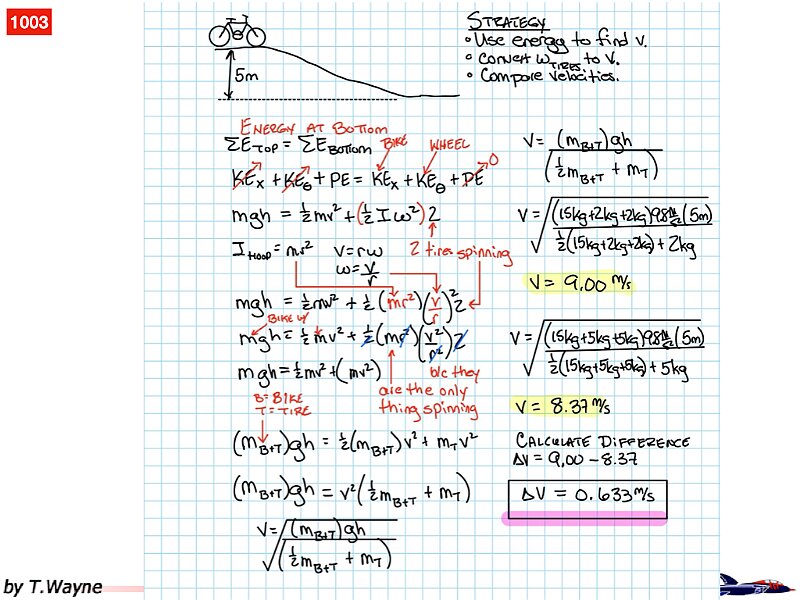 1003
STRATEGY
• Use energy to find v.
• convert ω_TIRES to v.
• Compare velocities.
5m
ENERGY AT BOTTOM
ΣE_TOP = ΣE_BOTTOM
BIKE
WHEEL
0
KE_x + KE_θ + PE = KE_x + KE_θ + PE
mgh = ½mv² + (½Iω²)2
I_HOOP = mr² v = rω
ω = v/r
2 tires spinning
mgh = ½mv² + ½(mr²)(v/r)²2
BIKE w/
mgh = ½mv² + ½(mr²)(v²/r²)2
mgh = ½mv² + (mv²)
b/c they
are the only
thing spinning
B = BIKE
T = TIRE
(m_B+T)gh = ½(m_B+T)v² + m_Tv²
(m_B+T)gh = v²(½m_B+T + m_T)
v = √((m_B+T)gh/(½m_B+T + m_T))
v = √((m_B+T)gh/(½m_B+T + m_T))
v = √((15kg+2kg+2kg)9.8m/s²(5m)/(½(15kg+2kg+2kg)+2kg))
v = 9.00 m/s
v = √((15kg+5kg+5kg)9.8m/s²(5m)/(½(15kg+5kg+5kg)+5kg))
v = 8.37 m/s
CALCULATE DIFFERENCE
ΔV = 9.00 – 8.37
ΔV = 0.633 m/s
by T.Wayne